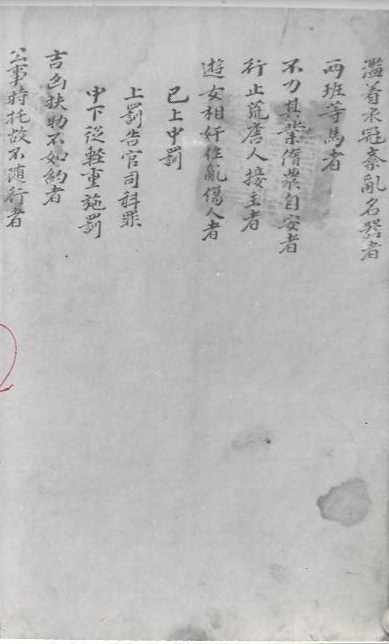 濫着衣冠紊亂名器者
両班等馬者
不力其業惰農自安者
行止荒唐人接主者
遊女相奸作亂傷人者
已上中罰
上罰告官司科罪
中下從輕重施罰
吉凶扶助不如約者
公事時托故不随行者